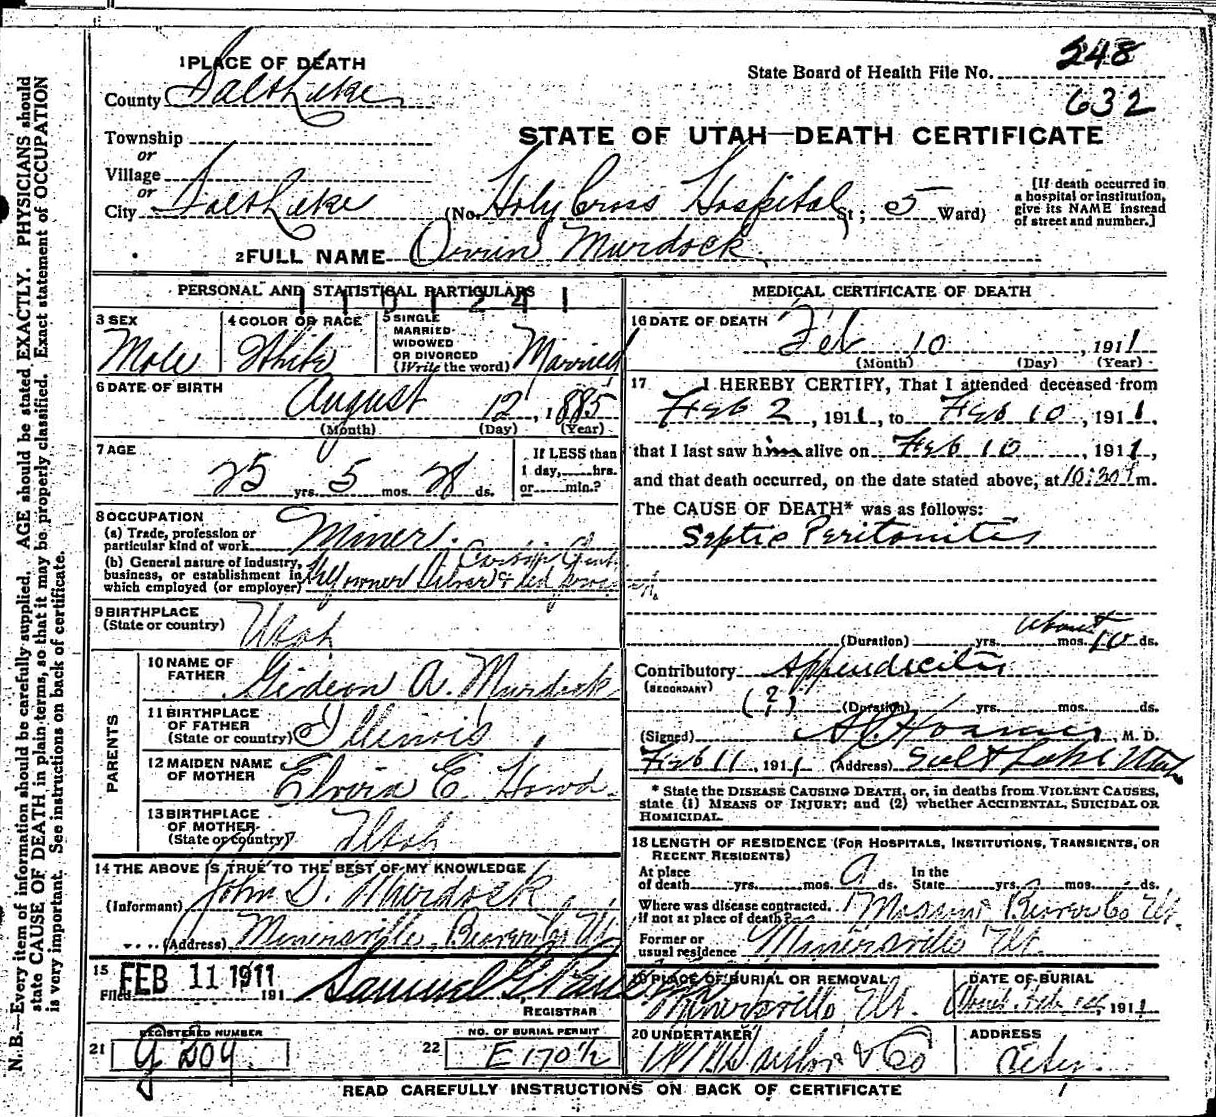 248
State Board of Health File No.
632
1 PLACE OF DEATH
County Salt Lake
STATE OF UTAH—DEATH CERTIFICATE
Township
or
Village
or
City Salt Lake (No. Holy Cross Hospital St; 5 Ward)
[If death occurred in
a hospital or institution,
give its NAME instead
of street and number.]
2 FULL NAME Orrin Murdock
PERSONAL AND STATISTICAL PARTICULARS
1101241
3 SEX
Male
4 COLOR OR RACE
White
5 SINGLE
MARRIED
WIDOWED
OR DIVORCED
(Write the word) Married
6 DATE OF BIRTH
August 12, 1885
(Month) (Day) (Year)
7 AGE
25 yrs. 5 mos. 28 ds.
If LESS than
1 day, hrs.
or min.?
8 OCCUPATION
(a) Trade, profession or
particular kind of work Miner.
(b) General nature of industry,
business, or establishment in
which employed (or employer) owner Silver &
9 BIRTHPLACE
(State or country) Utah
PARENTS
10 NAME OF
FATHER Gideon A. Murdock
11 BIRTHPLACE
OF FATHER
(State or country) Illinois
12 MAIDEN NAME
OF MOTHER Elvira E. Howd
13 BIRTHPLACE
OF MOTHER
(State or country) Utah
14 THE ABOVE IS TRUE TO THE BEST OF MY KNOWLEDGE
(Informant) John D. Murdock
(Address) Minersville Beaver Co Ut.
15
Filed FEB 11 1911 191 Samuel G.
REGISTRAR
REGISTERED NUMBER
21 G 209
NO. OF BURIAL PERMIT
22 E 170½
MEDICAL CERTIFICATE OF DEATH
16 DATE OF DEATH Feb 10, 1911
(Month) (Day) (Year)
17 I HEREBY CERTIFY, That I attended deceased from
Feb 2, 1911, to Feb 10, 1911.
that I last saw him alive on Feb 10, 1911,
and that death occurred, on the date stated above, at 10:20 m.
The CAUSE OF DEATH* was as follows:
Septic Peritonitis
(Duration) yrs. mos. about 10 ds.
Contributory Appendicitis
(SECONDARY)
(?) (Duration) yrs. mos. ds.
(Signed) , M. D.
Feb 11, 1911 (Address) Salt Lake Utah
* State the DISEASE CAUSING DEATH, or, in deaths from VIOLENT CAUSES,
state (1) MEANS OF INJURY; and (2) whether ACCIDENTAL, SUICIDAL OR
HOMICIDAL.
18 LENGTH OF RESIDENCE (FOR HOSPITALS, INSTITUTIONS, TRANSIENTS, OR
RECENT RESIDENTS)
At place
of death yrs. mos. 9 ds. In the
State yrs. mos. ds.
Where was disease contracted,
if not at place of death? Beaver Co Ut.
Former or
usual residence Minersville Ut.
19 PLACE OF BURIAL OR REMOVAL
Minersville, Ut.
DATE OF BURIAL
Feb 14, 1911
20 UNDERTAKER
& Co
ADDRESS
City.
READ CAREFULLY INSTRUCTIONS ON BACK OF CERTIFICATE
N. B.—Every item of information should be carefully supplied. AGE should be stated EXACTLY. PHYSICIANS should
state CAUSE OF DEATH in plain terms, so that it may be properly classified. Exact statement of OCCUPATION
is very important. See instructions on back of certificate.